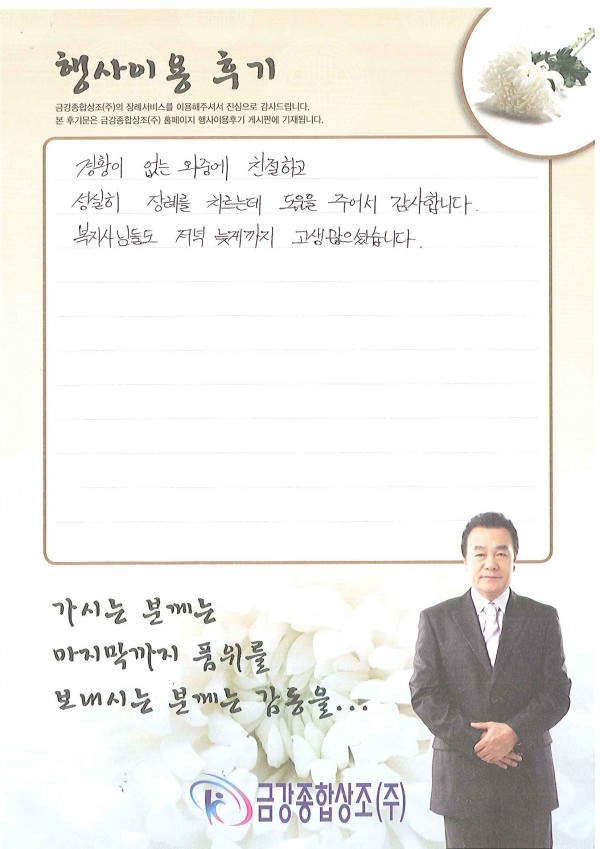 행사이용 후기
금강종합상조(주)의 장례서비스를 이용해주셔서 진심으로 감사드립니다.
본 후기문은 금강종합상조(주) 홈페이지 행사이용후기 게시판에 기재됩니다.
경황이 없는 와중에 친절하고
성실히 장례를 치르는데 도움을 주어서 감사합니다.
복지사님들도 저녁 늦게까지 고생많으셨습니다.
가시는 분께는
마지막까지 품위를
보내시는 분께는 감동을...
금강종합상조(주)